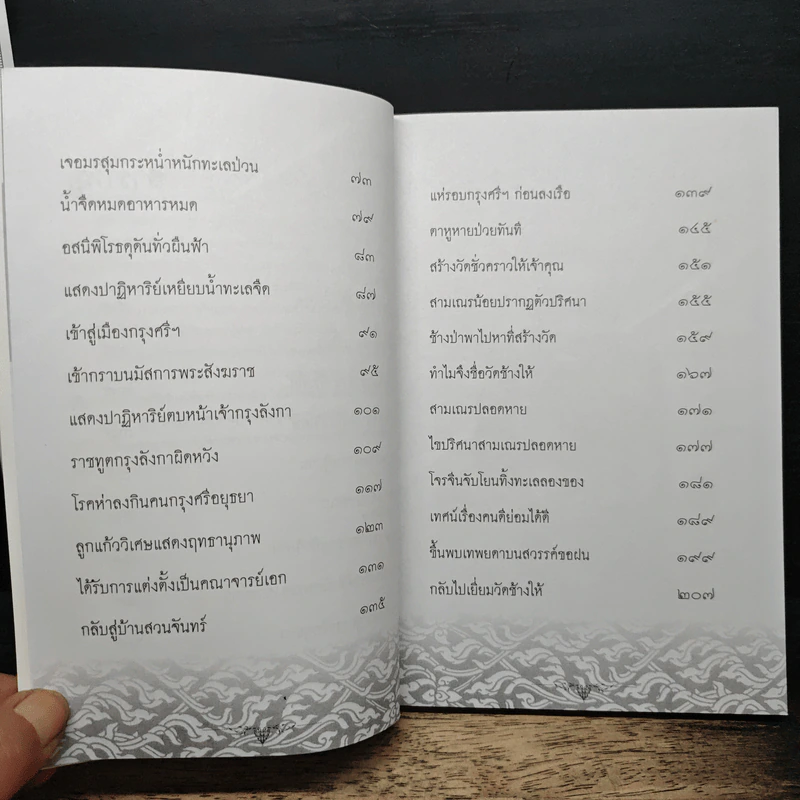 เจอมรสุมกระหน่ำหนักทะเลป่วน ๗๓
น้ำจืดหมดอาหารหมด ๗๙
อสนีพิโรธดุดันทั่วผืนฟ้า ๘๓
แสดงปาฏิหาริย์เหยียบน้ำทะเลจืด ๘๗
เข้าสู่เมืองกรุงศรีฯ ๙๑
เข้ากราบนมัสการพระสังฆราช ๙๕
แสดงปาฏิหาริย์ตบหน้าเจ้ากรุงลังกา ๑๐๑
ราชทูตกรุงลังกาผิดหวัง ๑๐๙
โรคห่าลงกินคนกรุงศรีอยุธยา ๑๑๗
ลูกแก้ววิเศษแสดงฤทธานุภาพ ๑๒๓
ได้รับการแต่งตั้งเป็นคณาจารย์เอก ๑๓๑
กลับสู่บ้านสวนจันทร์ ๑๓๕
แห่รอบกรุงศรีฯ ก่อนลงเรือ ๑๓๙
ตาหูหายป่วยทันที ๑๔๕
สร้างวัดชั่วคราวให้เจ้าคุณ ๑๕๑
สามเณรน้อยปรากฏตัวปริศนา ๑๕๕
ช้างป่าพาไปหาที่สร้างวัด ๑๕๙
ทำไมจึงชื่อวัดช้างให้ ๑๖๗
สามเณรปลอดหาย ๑๗๑
ไขปริศนาสามเณรปลอดหาย ๑๗๗
โจรจีนจับโยนทิ้งทะเลลองของ ๑๘๑
เทศน์เรื่องคนดีย่อมได้ดี ๑๘๙
ขึ้นพบเทพยดาบนสวรรค์ขอฝน ๑๙๙
กลับไปเยี่ยมวัดช้างให้ ๒๐๗